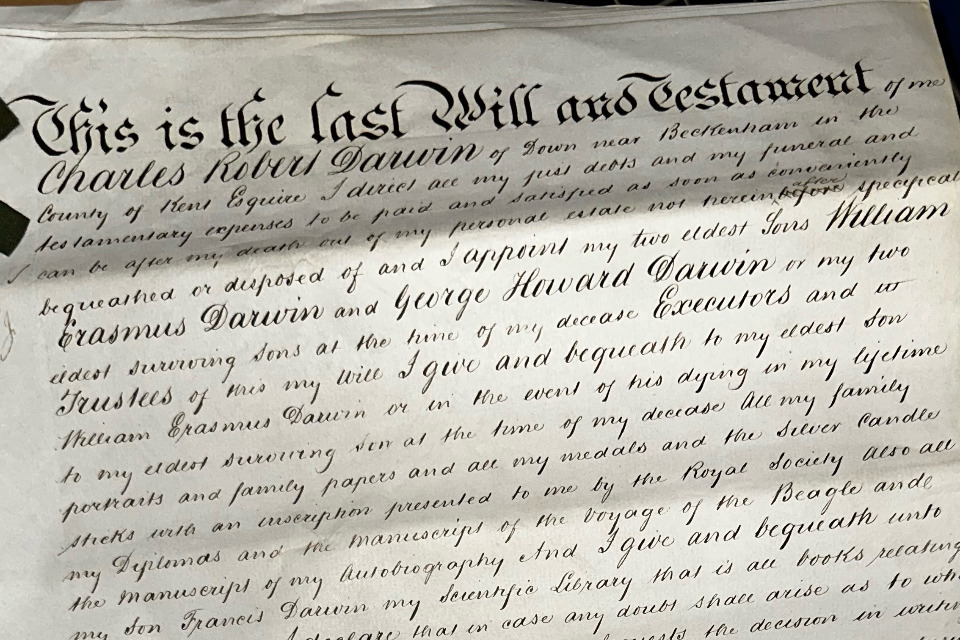 This is the last Will and Testament of me
Charles Robert Darwin of Down near Beckenham in the
County of Kent Esquire I direct all my just debts and my funeral and
testamentary expenses to be paid and satisfied as soon as conveniently
can be after my death out of my personal estate not herein before after specifical
bequeathed or disposed of and I appoint my two eldest Sons William
Erasmus Darwin and George Howard Darwin or my two
eldest surviving sons at the time of my decease Executors and
Trustees of this my Will I give and bequeath to my eldest son
William Erasmus Darwin or in the event of his dying in my lifetime
to my eldest surviving son at the time of my decease All my family
portraits and family papers and all my medals and the Silver Candle
sticks with an inscription presented to me by the Royal Society Also all
my Diplomas and the manuscript of the Voyage of the Beagle and
the manuscript of my Autobiography And I give and bequeath unto
my son Francis Darwin my Scientific Library that is all books relating
I declare that in case any doubt shall arise as to
the decision in